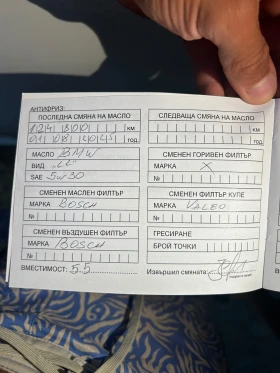 АНТИФРИЗ:
ПОСЛЕДНА СМЯНА НА МАСЛО
км
год.
МАСЛО BMW
ВИД "LL"
SAE 5w30
СМЕНЕН МАСЛЕН ФИЛТЪР
МАРКА BOSCH
№
СМЕНЕН ВЪЗДУШЕН ФИЛТЪР
МАРКА BOSCH
№
ВМЕСТИМОСТ: 5.5
СЛЕДВАЩА СМЯНА НА МАСЛО
км
год.
СМЕНЕН ГОРИВЕН ФИЛТЪР
МАРКА X
№
СМЕНЕН ФИЛТЪР КУПЕ
МАРКА VALEO
№
ГРЕСИРАНЕ
БРОЙ ТОЧКИ
Извършил смяната: